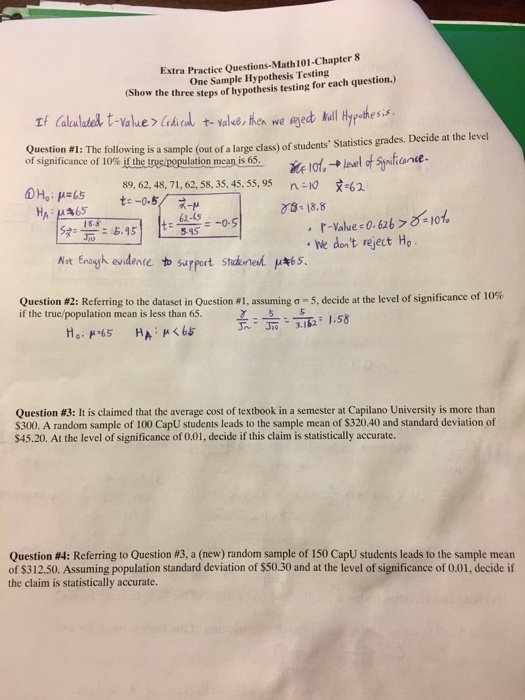 Extra Practice Questions-Math101-Chapter 8
One Sample Hypothesis Testing
(Show the three steps of hypothesis testing for each question.)
If Calculated t-value > Critical t-value, then we reject Null Hypothesis.
Question #1: The following is a sample (out of a large class) of students' Statistics grades. Decide at the level
of significance of 10% if the true/population mean is 65.
10% → Level of Significance.
89, 62, 48, 71, 62, 58, 35, 45, 55, 95 n=10 x̄=62
① H₀: μ=65 t=-0.5
H_A: μ≠65
S_x̄ = 18.8/√10 = 5.95
t = x̄-μ
t = 62-65/5.95 = -0.5
= 18.8
• P-Value = 0.626 > = 10%
• We don't reject H₀.
Not Enough evidence to support statement μ≠65.
Question #2: Referring to the dataset in Question #1, assuming σ = 5, decide at the level of significance of 10%
if the true/population mean is less than 65.
H₀: μ=65 H_A: μ<65
γ/√n = 5/√10 = 5/3.162 = 1.58
Question #3: It is claimed that the average cost of textbook in a semester at Capilano University is more than
$300. A random sample of 100 CapU students leads to the sample mean of $320.40 and standard deviation of
$45.20. At the level of significance of 0.01, decide if this claim is statistically accurate.
Question #4: Referring to Question #3, a (new) random sample of 150 CapU students leads to the sample mean
of $312.50. Assuming population standard deviation of $50.30 and at the level of significance of 0.01, decide if
the claim is statistically accurate.